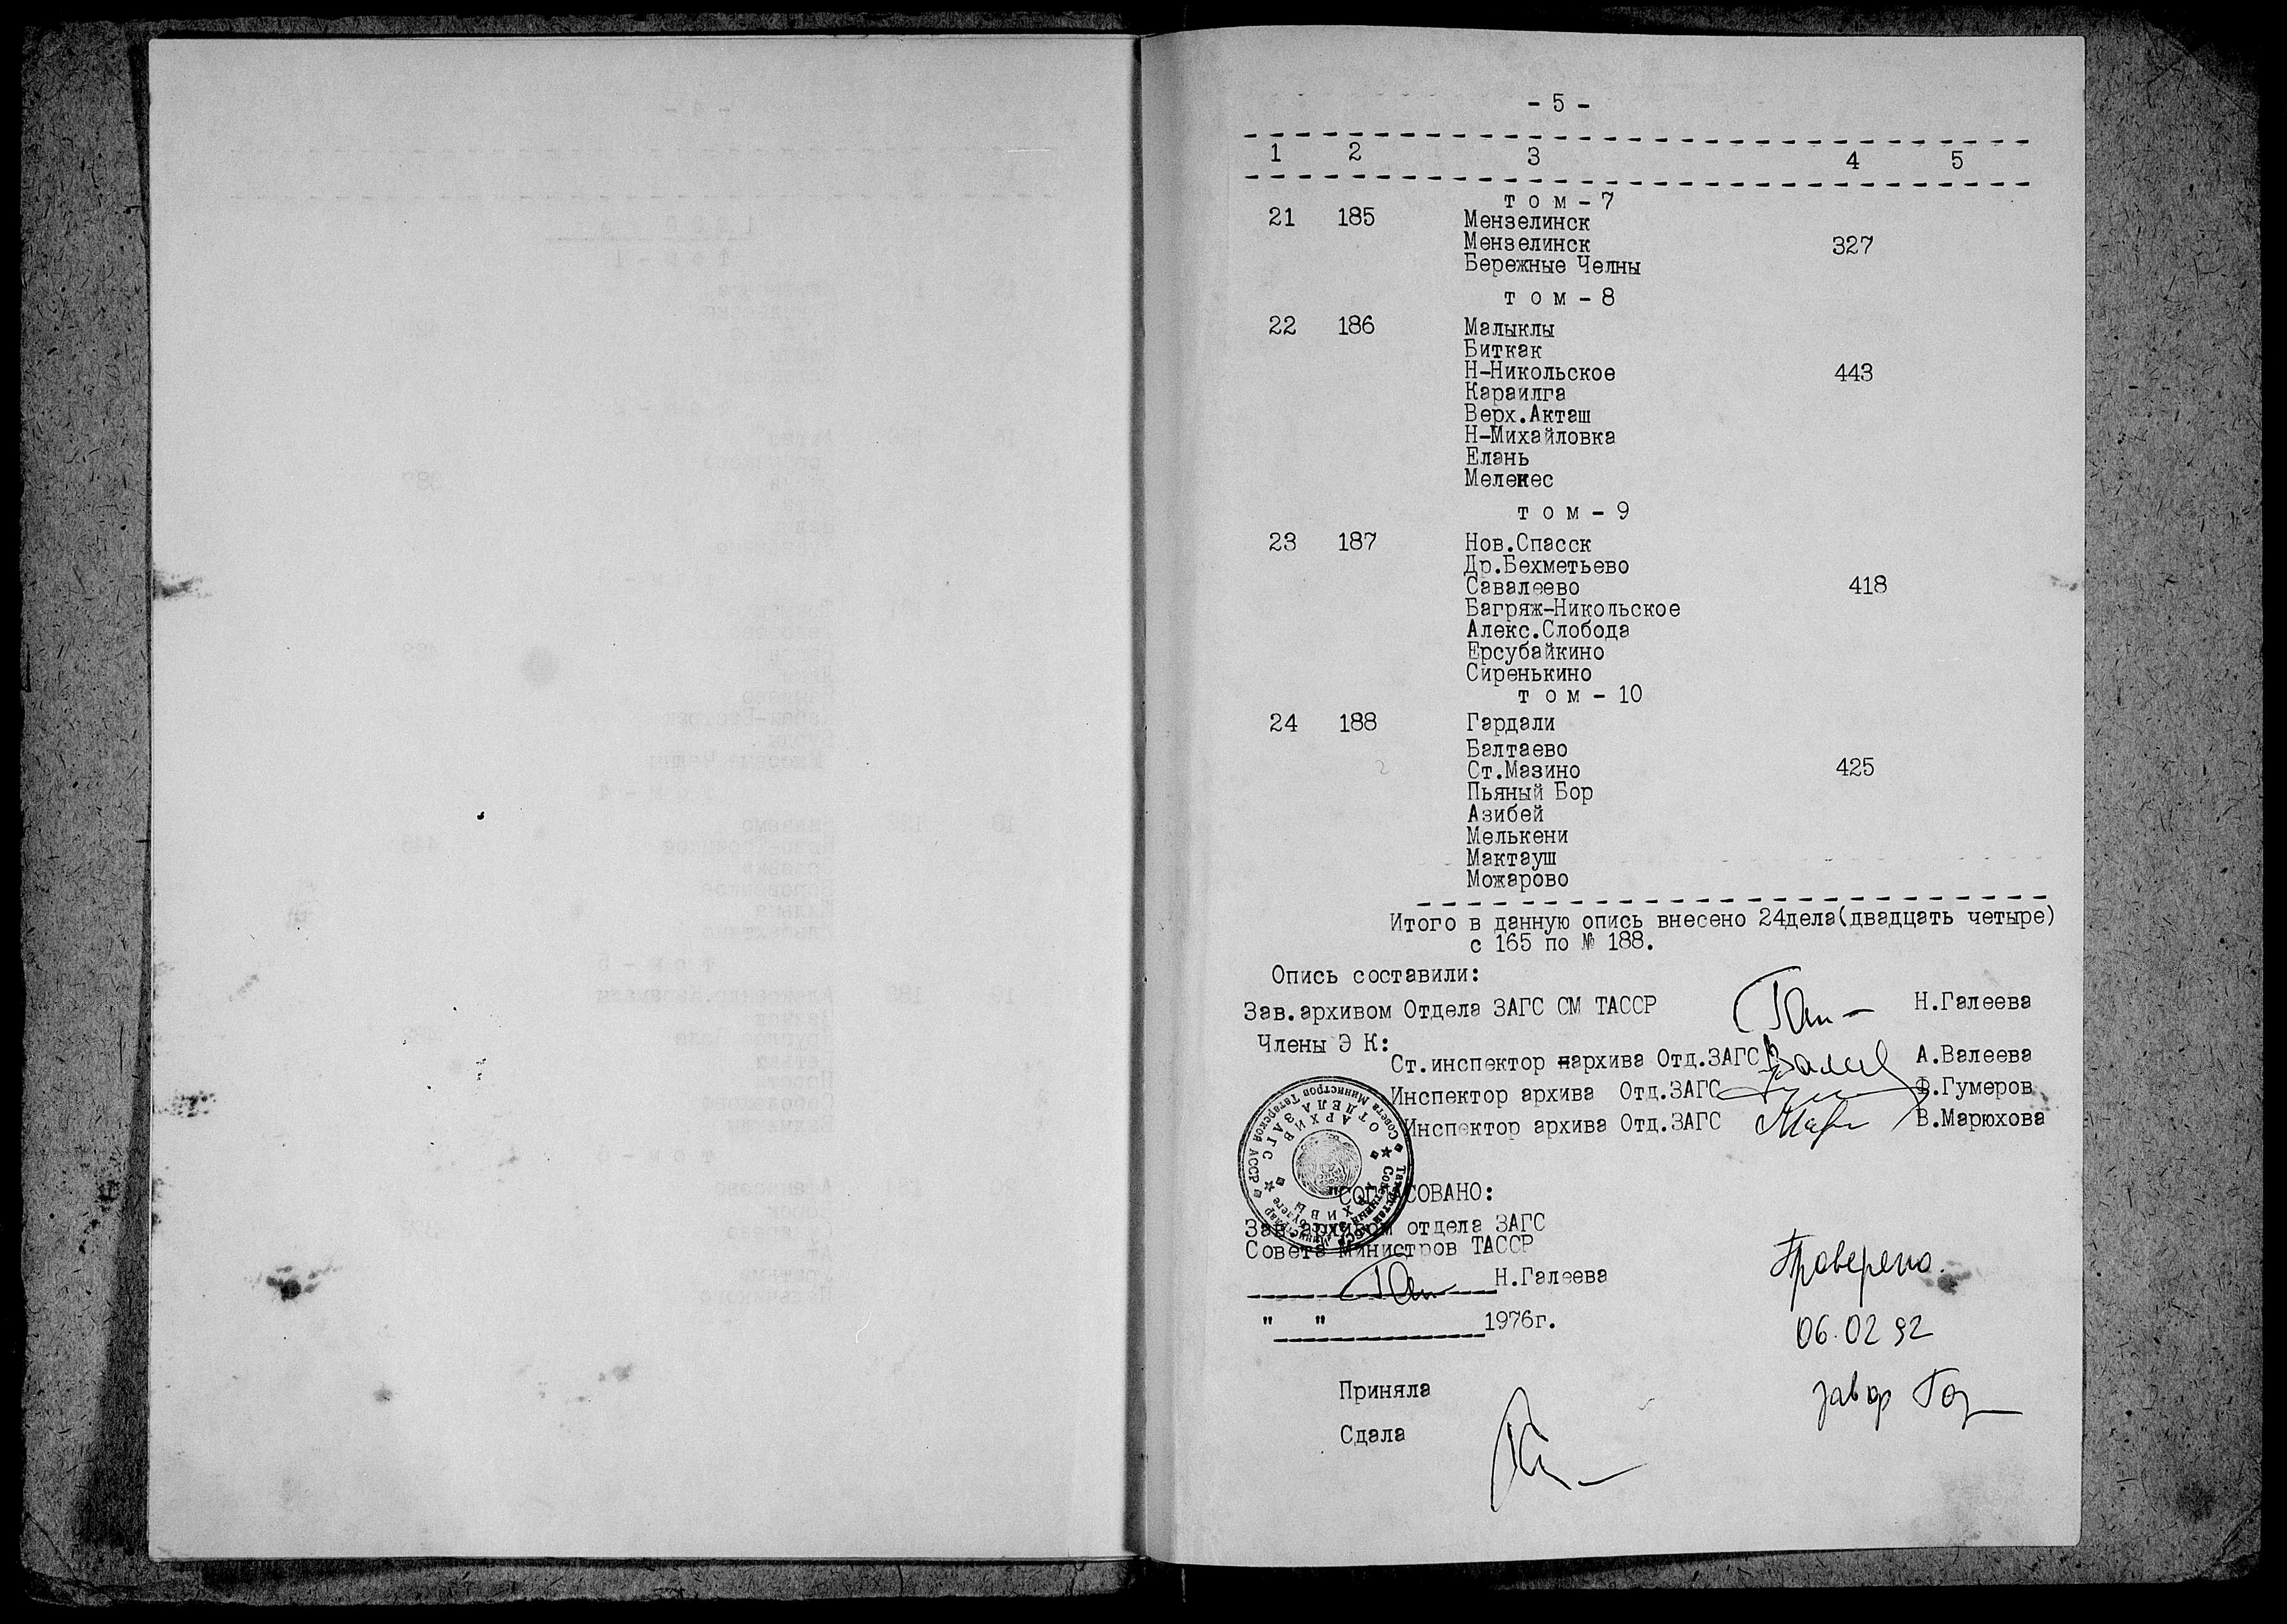 - 5 -
1 2 3 4 5
т о м - 7
21 185 Мензелинск
Мензелинск 327
Бережные Челны
т о м - 8
22 186 Малыклы
Биткак
Н-Никольское 443
Караилга
Верх.Акташ
Н-Михайловка
Елань
Мелекес
т о м - 9
23 187 Нов.Спасск
Др.Бехметьево
Савалеево 418
Багряж-Никольское
Алекс.Слобода
Ерсубайкино
Сиренькино
т о м - 10
24 188 Гардали
Балтаево
Ст.Мазино 425
Пьяный Бор
Азибей
Мелькени
Мактауш
Можарово
Итого в данную опись внесено 24дела(двадцать четыре)
с 165 по № 188.
Опись составили:
Зав.архивом Отдела ЗАГС СМ ТАССР Н.Галеева
Члены Э К:
Ст.инспектор архива Отд.ЗАГС А.Валеева
Инспектор архива Отд.ЗАГС Ф.Гумеров
Инспектор архива Отд.ЗАГС В.Марюхова
"СОГЛАСОВАНО:
Зав.архивом отдела ЗАГС
Совета Министров ТАССР
Н.Галеева
" " 1976г.
Проверено.
06.02 92
Приняла
Сдала